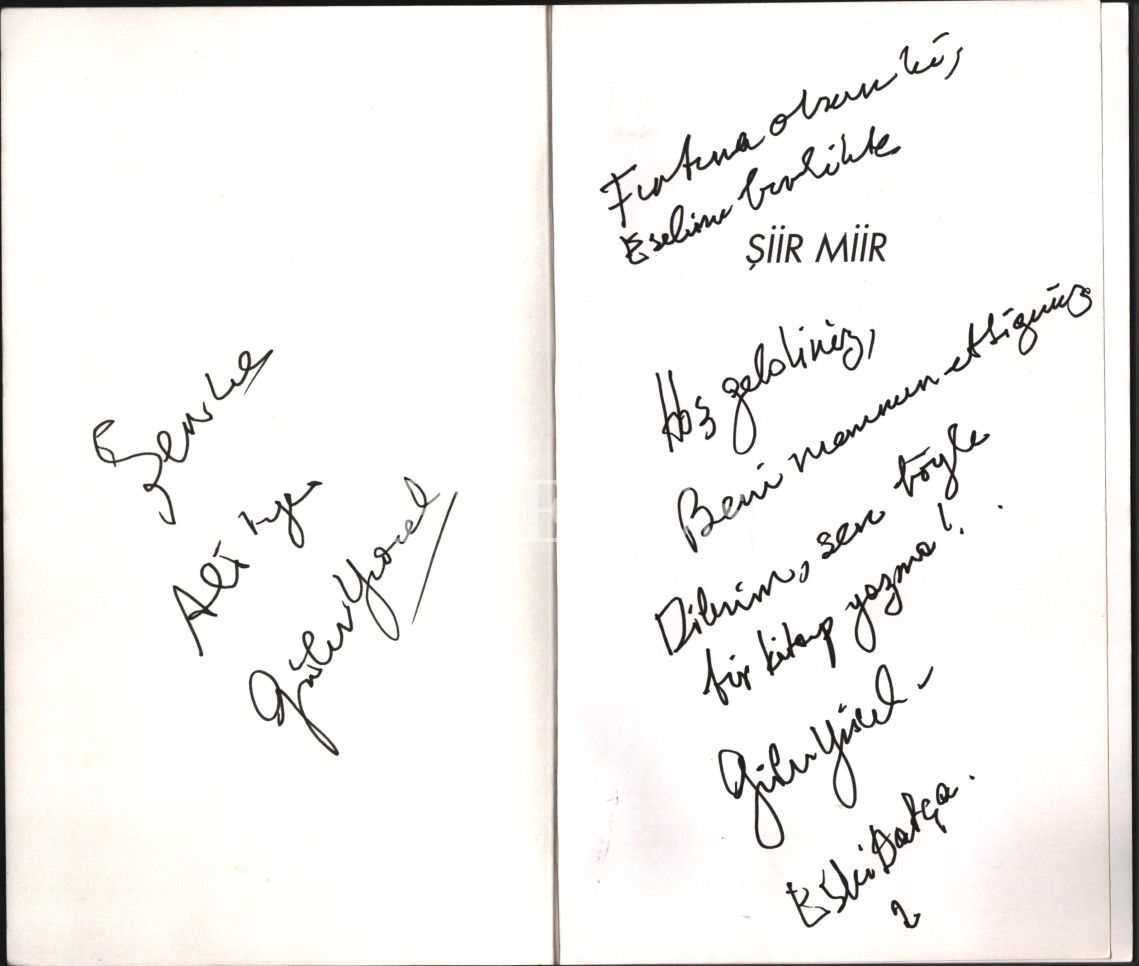 Şenol
Ali
Güler Yücel
Fırtına olsan küs,
Eselim birlikte
ŞİİR MİİR
Hoş geldiniz,
Beni memnun ettiğiniz
Dilerim, sen böyle
bir kitap yazma!
Güler Yücel
Eski Datça.